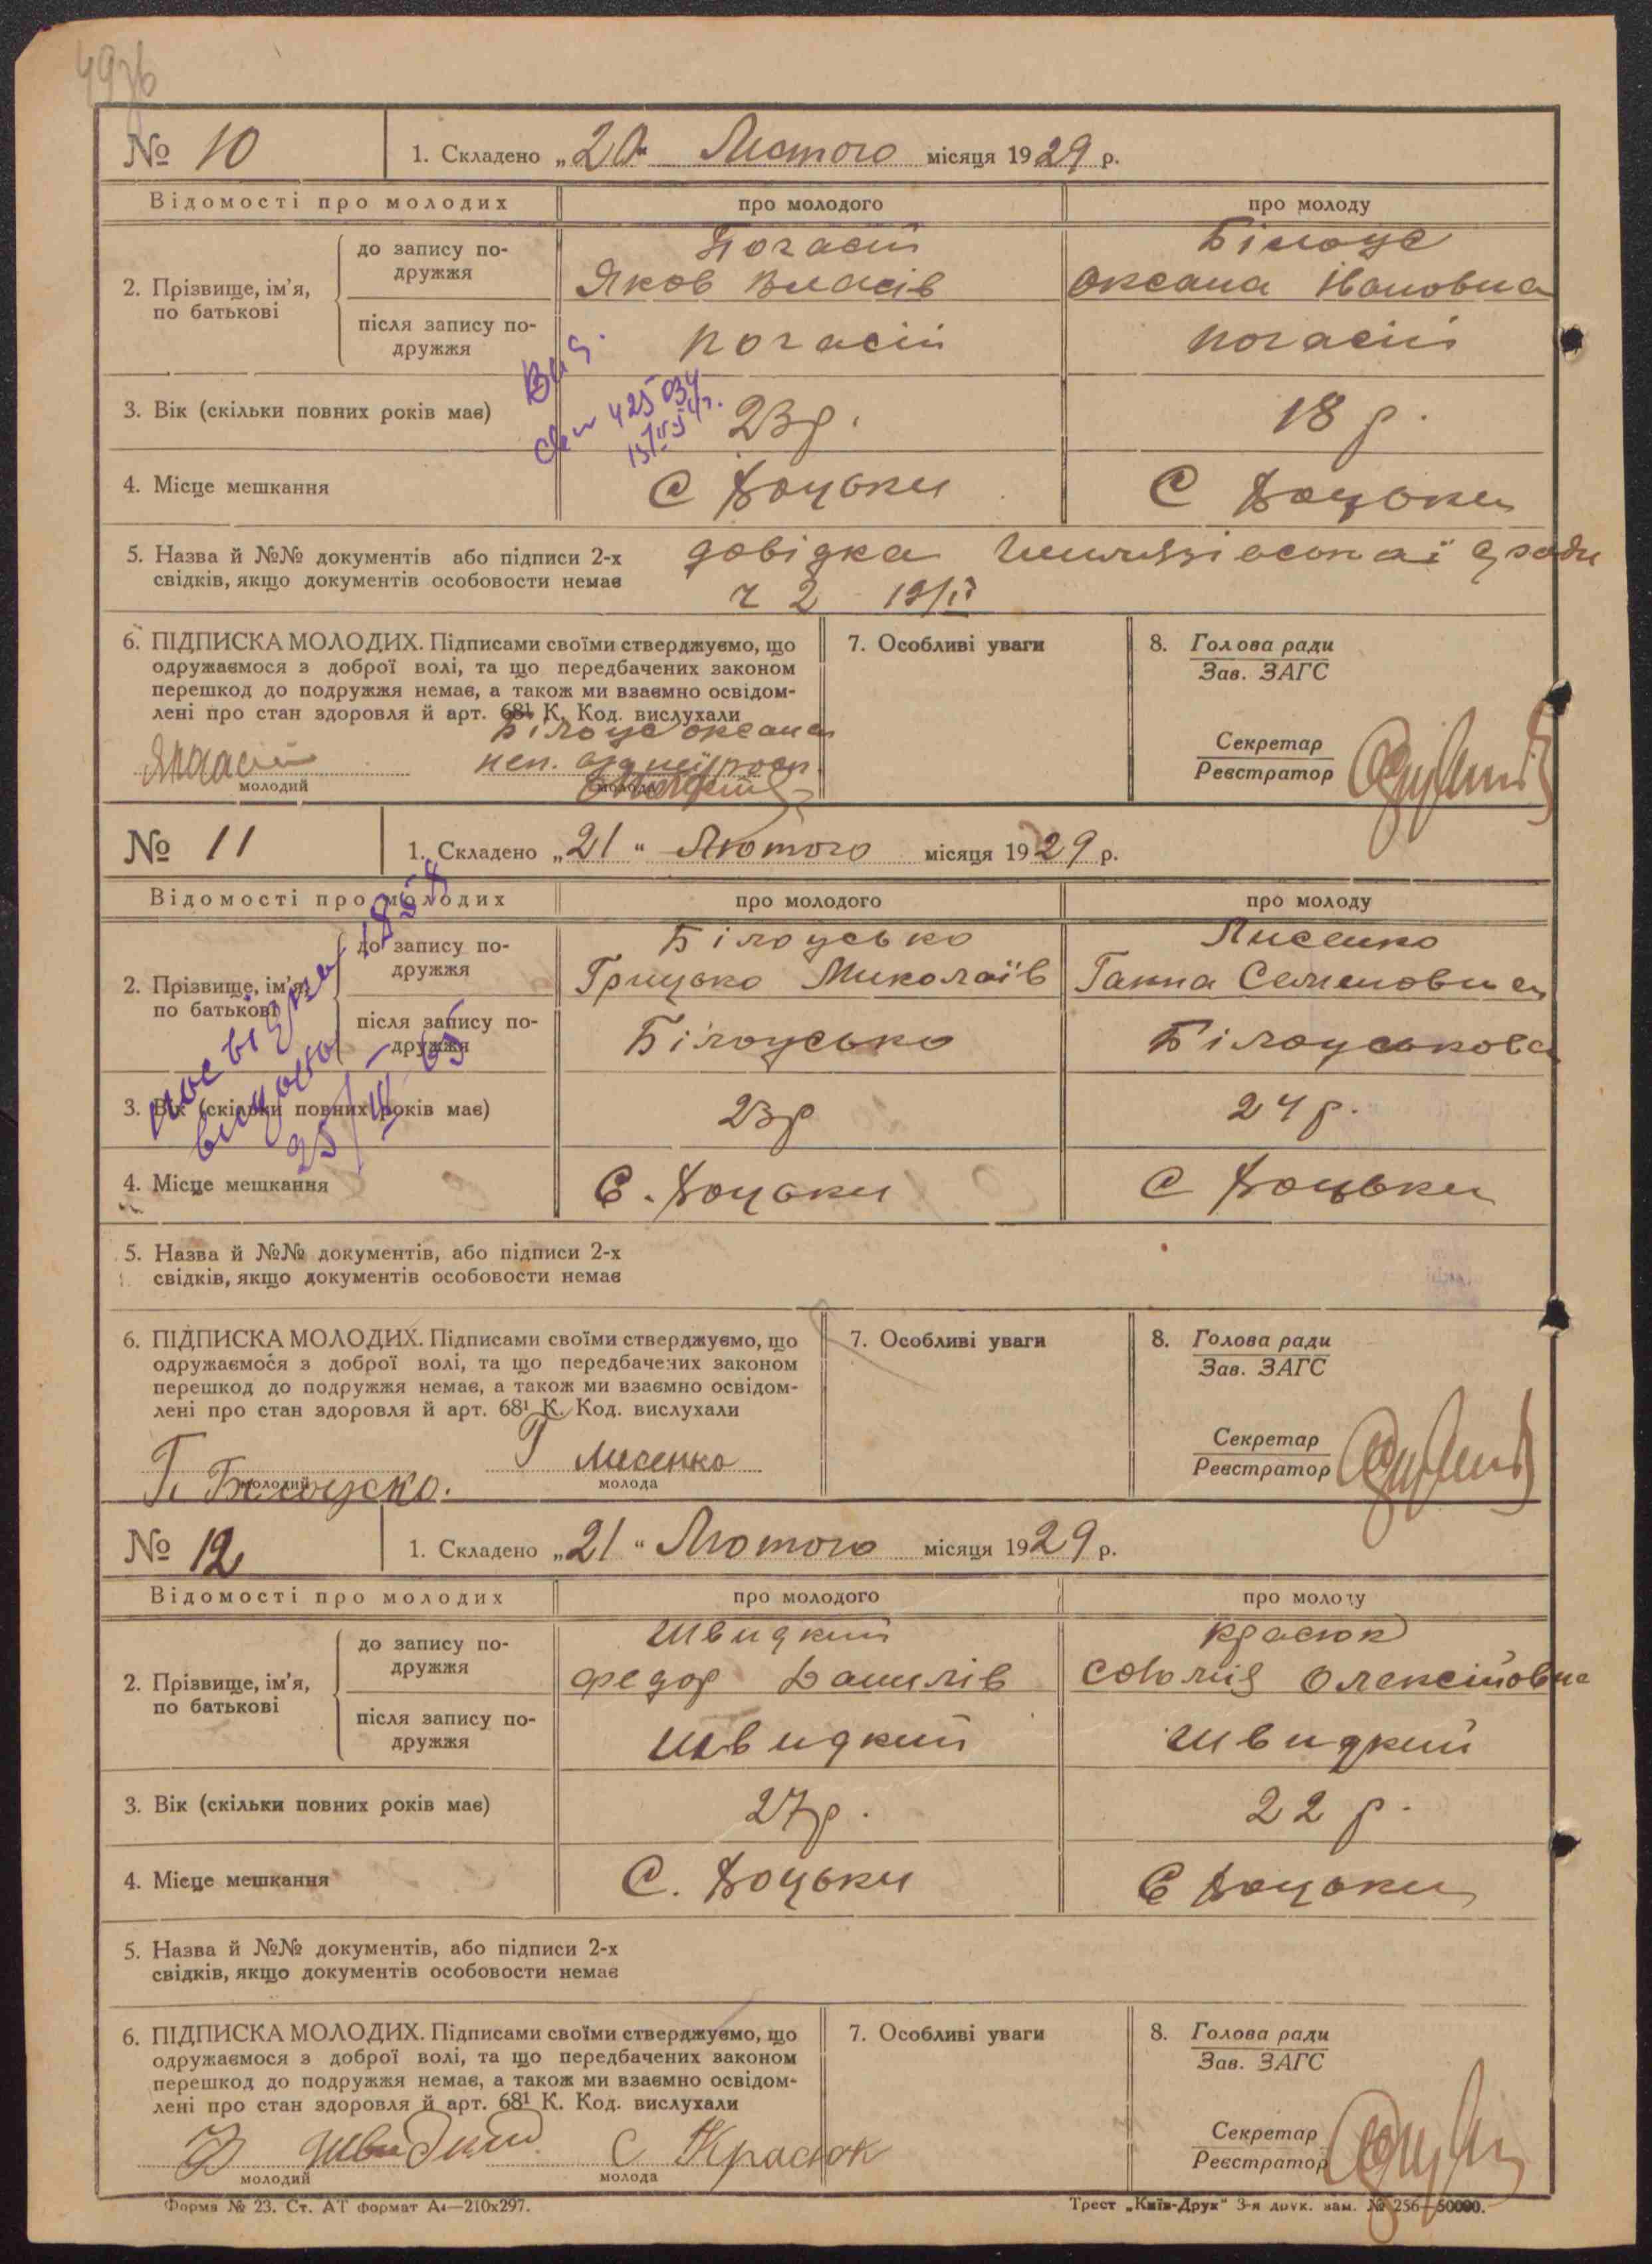 № 10
1. Складено „20" Лютого місяця 1929 р.
Відомості про молодих
про молодого
про молоду
2. Прізвище, ім'я, по батькові
до запису по-
дружжя
Погасій
Яков Власів
Білоус
Оксана Івановна
після запису по-
дружжя
Погасій
Погасій
3. Вік (скільки повних років має)
23 р.
18 р.
Вид.
425034
4. Місце мешкання
С Доцьки
С Доцьки
5. Назва й №№ документів або підписи 2-х
свідків, якщо документів особовости немає
довідка
ч 2 19/II
6. ПІДПИСКА МОЛОДИХ. Підписами своїми стверджуємо, що
одружаємося з доброї волі, та що передбачених законом
перешкод до подружжя немає, а також ми взаємно освідом-
лені про стан здоровля й арт. 68¹ К. Код. вислухали
Білоус Оксана
молодий
7. Особливі уваги
8. Голова ради
Зав. ЗАГС
Секретар
Реєстратор
№ 11
1. Складено „21" Лютого місяця 1929 р.
Відомості про молодих
про молодого
про молоду
2. Прізвище, ім'я,
по батькові
до запису по-
дружжя
Білоусько
Грицько Миколаїв
Лисенко
Ганна Семеновна
після запису по-
дружжя
Білоусько
Білоуськова
3. Вік (скільки повних років має)
23 р
24 р.
4. Місце мешкання
С. Доцьки
С Доцьки
5. Назва й №№ документів, або підписи 2-х
свідків, якщо документів особовости немає
6. ПІДПИСКА МОЛОДИХ. Підписами своїми стверджуємо, що
одружаємося з доброї волі, та що передбачених законом
перешкод до подружжя немає, а також ми взаємно освідом-
лені про стан здоровля й арт. 68¹ К. Код. вислухали
Г. Білоуско.
молодий
Г Лисенко
молода
7. Особливі уваги
8. Голова ради
Зав. ЗАГС
Секретар
Реєстратор
№ 12
1. Складено „21" Лютого місяця 1929 р.
Відомості про молодих
про молодого
про молоду
2. Прізвище, ім'я,
по батькові
до запису по-
дружжя
Швидкий
Федор Данилів
Красюк
Софія Олексійовна
після запису по-
дружжя
Швидкий
Швидкий
3. Вік (скільки повних років має)
27 р.
22 р.
4. Місце мешкання
С. Доцьки
С Доцьки
5. Назва й №№ документів, або підписи 2-х
свідків, якщо документів особовости немає
6. ПІДПИСКА МОЛОДИХ. Підписами своїми стверджуємо, що
одружаємося з доброї волі, та що передбачених законом
перешкод до подружжя немає, а також ми взаємно освідом-
лені про стан здоровля й арт. 68¹ К. Код. вислухали
Ф Швидкий
молодий
С Красюк
молода
7. Особливі уваги
8. Голова ради
Зав. ЗАГС
Секретар
Реєстратор
Форма № 23. Ст. АТ формат А4—210х297.
Трест „Київ-Друк" 3-я друк. зам. № 256—50000.